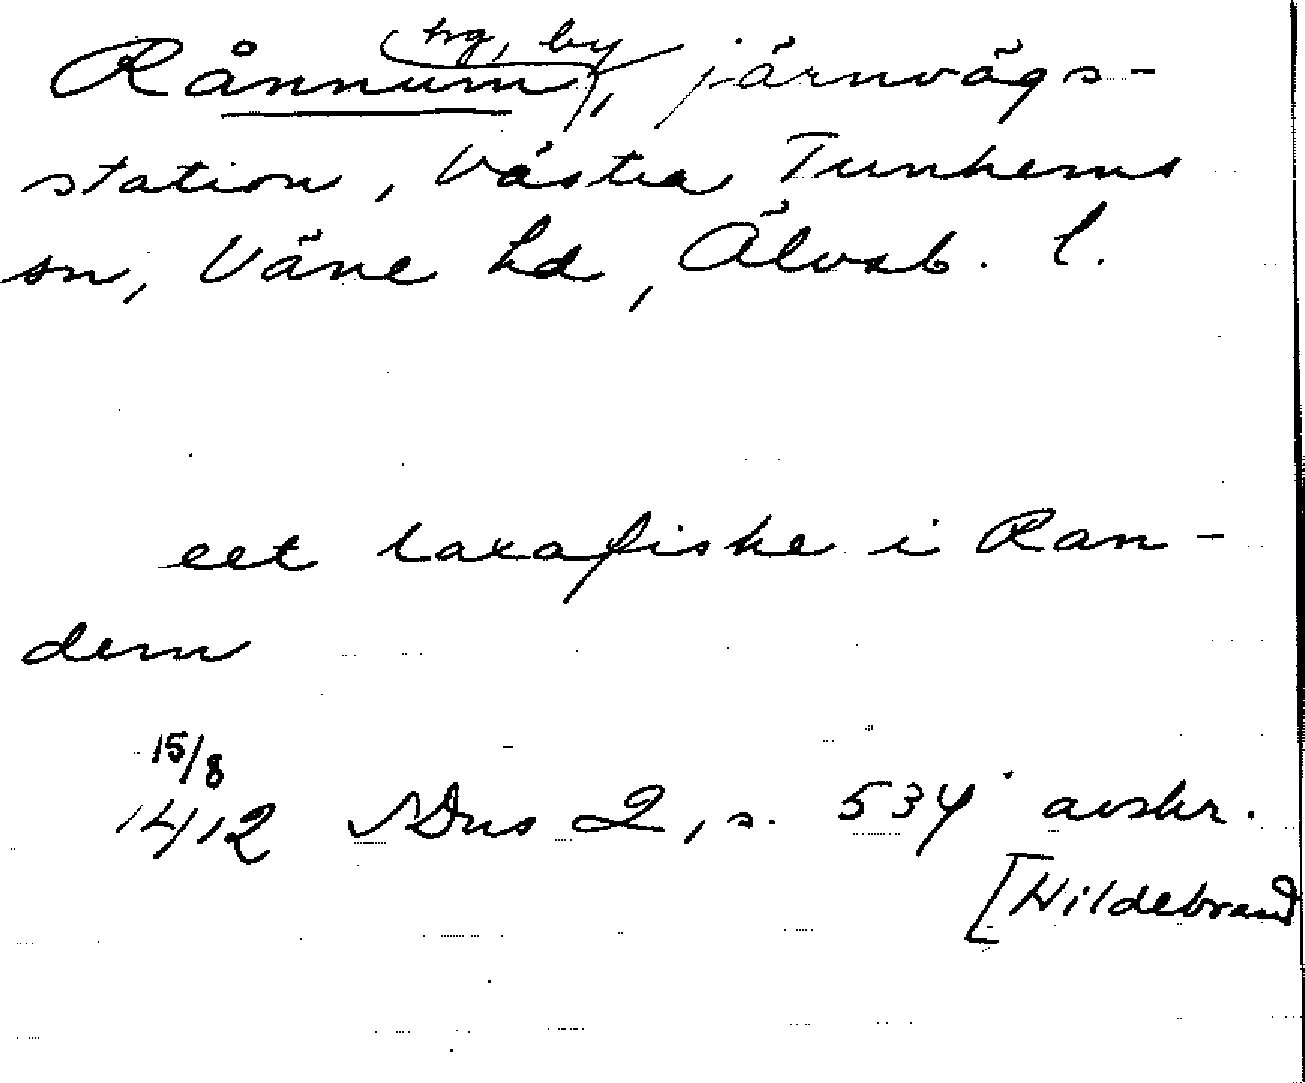 trg, by
Rånnum, järnvägs-
station, Västra Tunhems
sn, Väne hd, Älvsb. l.
eet laxafiske i Ran-
dem
15/8
1412 NDns 2, s. 534 avskr.
[Hildebrand